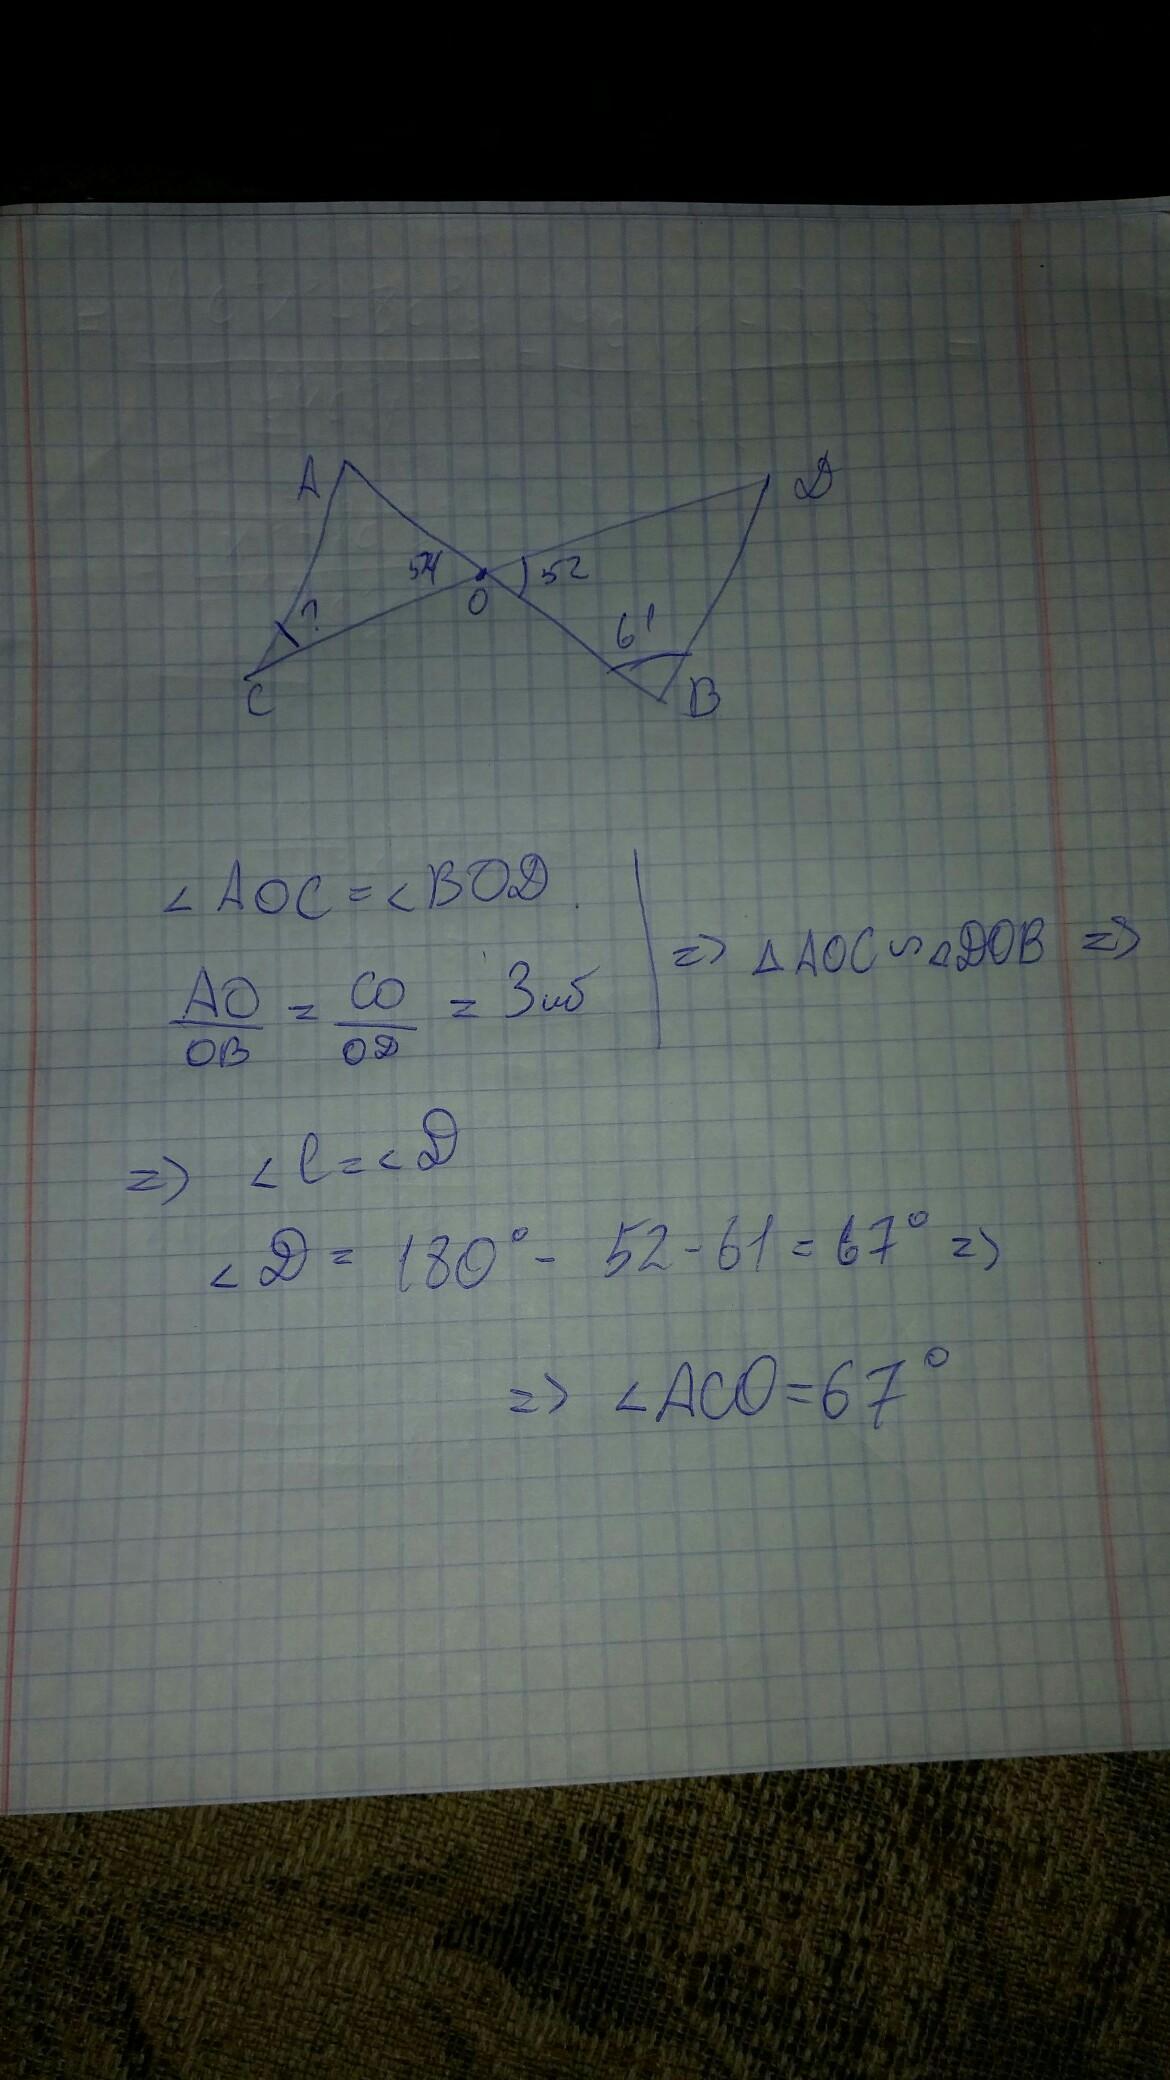 A
D
54
52
O
?
61
C
B
∠AOC = ∠BOD.
AO/OB = CO/OD = 3 => △AOC ∾ △DOB =>
=> ∠C = ∠D
∠D = 180° - 52 - 61 = 67° =>
=> ∠ACO = 67°